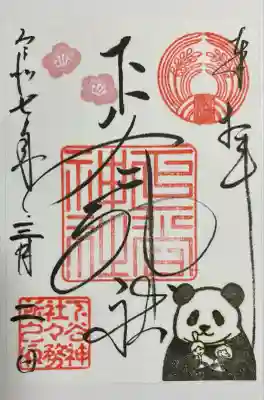 奉拝
下谷神社
下谷神社
令和七年三月二日
下谷神
社々務
所之印